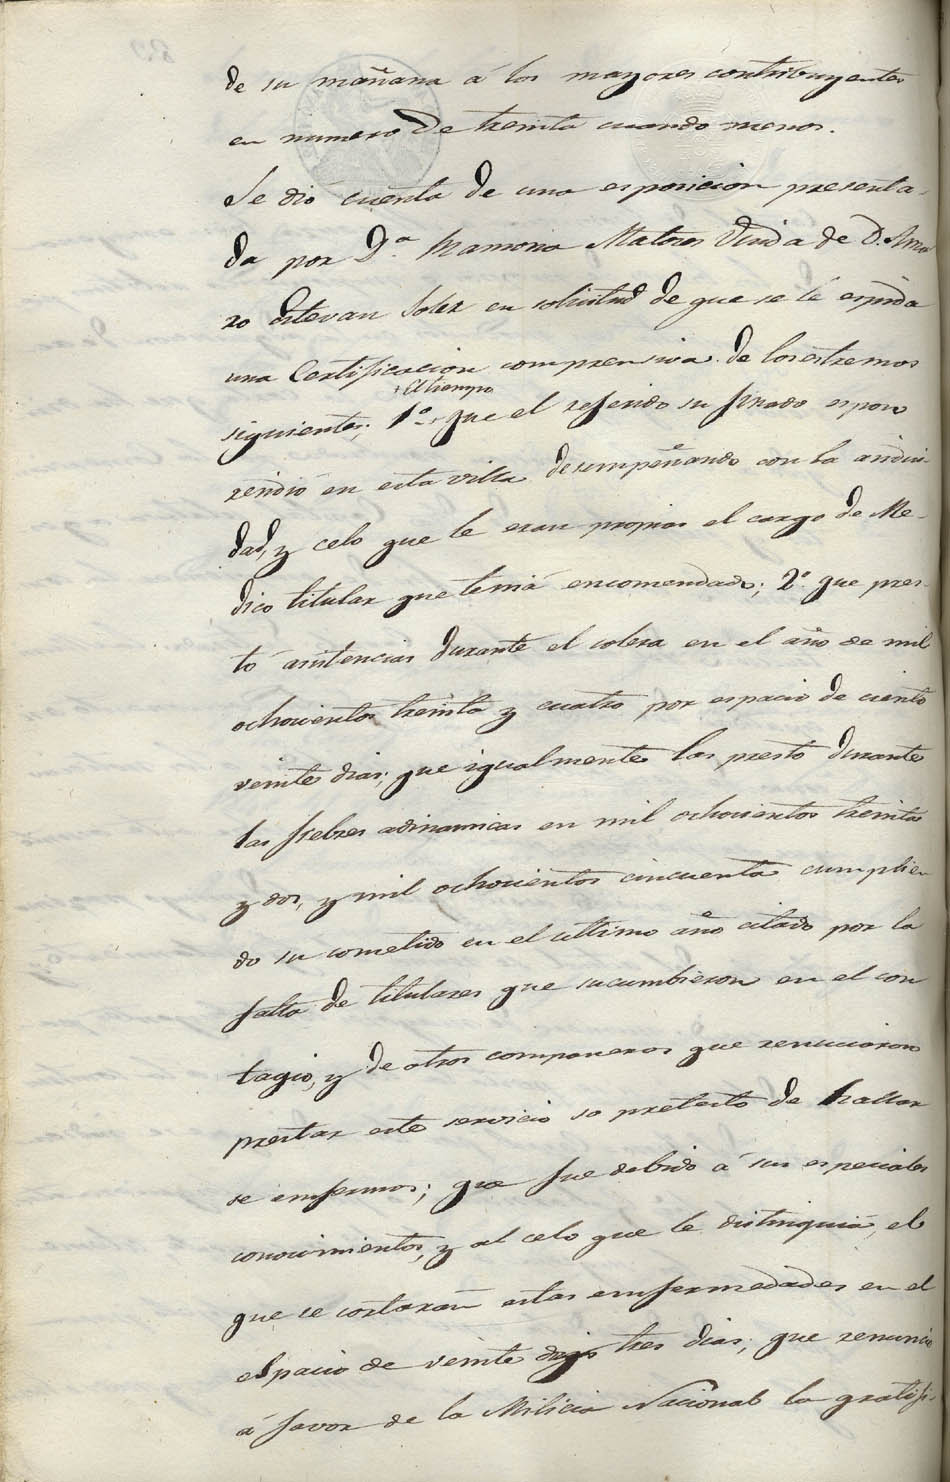 de su mañana á los mayores contribuyentes
en numero de treinta cuando menos.
Se dió cuenta de una esposicion presenta-
da por D.ª Ramona Mataros Viuda de D. Ama
ro Estevan Soler en solicitud de que se le espida
una Certificacion comprensiva de los estremos
el tiempo
siguientes; 1º que el referido su finado espon
rendió en esta villa desempeñando con la asidui-
dad, y celo que le eran propios el cargo de Me-
dico titular que tenia encomendado; 2º que pres-
tó asistencias durante el colera en el año de mil
ochocientos treinta y cuatro por espacio de ciento
veinte dias; que igualmente las prestó durante
las fiebres adinamicas en mil ochocientos treinta
y dos, y mil ochocientos cincuenta cumplien
do su cometido en el ultimo año citado por la
falta de titulares que sucumbieron en el con
tagio, y de otros companeros que renuciaron
prestar este servicio so pretesto de hallar
se enfermos; que fue debido á sus especiales
conocimientos, y al celo que le distinguiá, el
que se cortaran estas enfermedades en el
espacio de veinte tres dias; que renunció
á favor de la Milicia Nacional la gratifi-